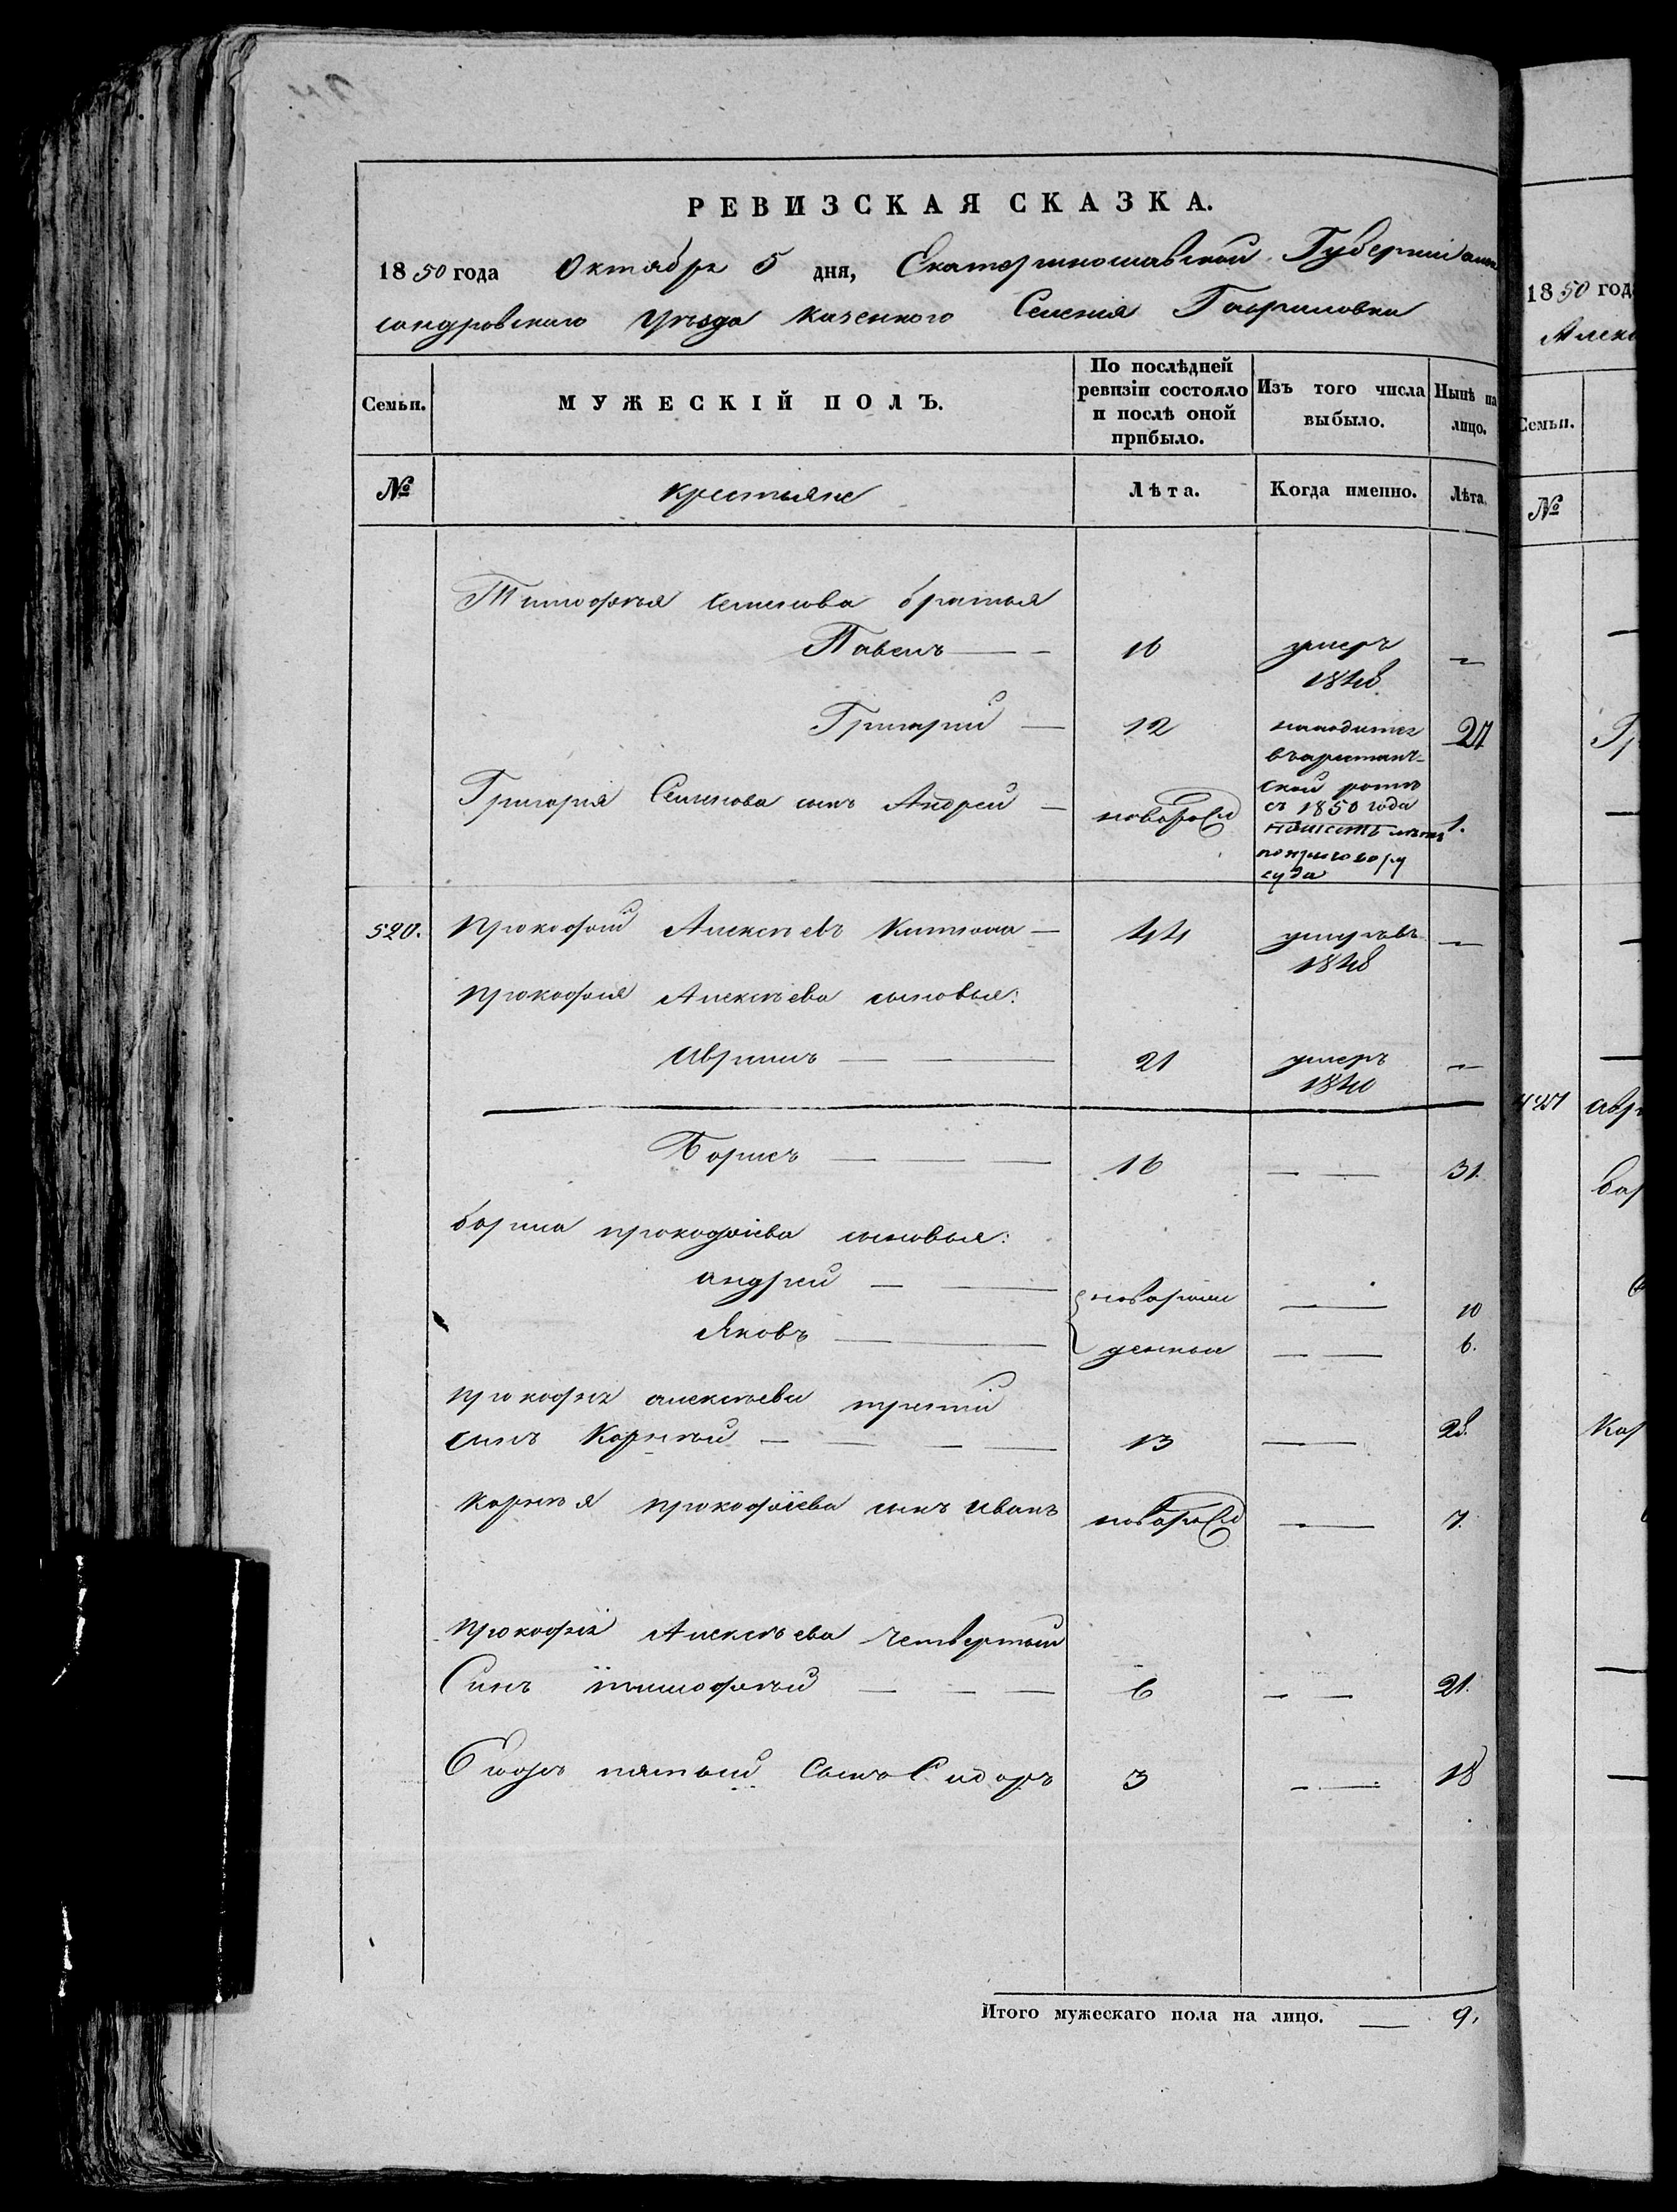 РЕВИЗСКАЯ СКАЗКА.
1850 года Октября 5 дня, Екатеринославской Губернии Алек
сандровскаго уѣзда казеннаго Селения Гавриловки
Семьи. МУЖЕСКІЙ ПОЛЪ. По послѣдней ревизіи состояло и послѣ оной прибыло. Изъ того числа выбыло. Нынѣ на лицо.
№ крестьяне Лѣта. Когда именно. Лѣта.
Тимофѣя Семенова братья
Павелъ — 16 умеръ 1848 —
Григорий — 12 находится въ арестант- 27
Григория Семенова сынъ Андрей — новорож ской ротѣ съ 1850 года 1.
по приговору
суда
520. Прокофий Алексѣевъ — 44 умеръ въ 1848 —
Прокофия Алексѣева сыновья:
Авраамъ — — 21 умеръ 1840 —
Борисъ — — — 16 — — 31.
Бориса прокофіева сыновья:
Андрей — — новорож — 10
Яковъ — денные — — 6.
Прокофія алексѣева третий
сынъ Корнѣй — — — — 13 — 28.
Корнѣя прокофіева сынъ Иванъ новорож — 7.
Прокофія Алексѣева Четвертый
Сынъ Тимофѣй — — — 6 — — 21.
Его жъ пятый Сынъ Сидоръ 3 — — 18
Итого мужескаго пола на лицо. — 9.
1850 год
Алекс
Семьи.
№
Гр
авр
бор
Кор